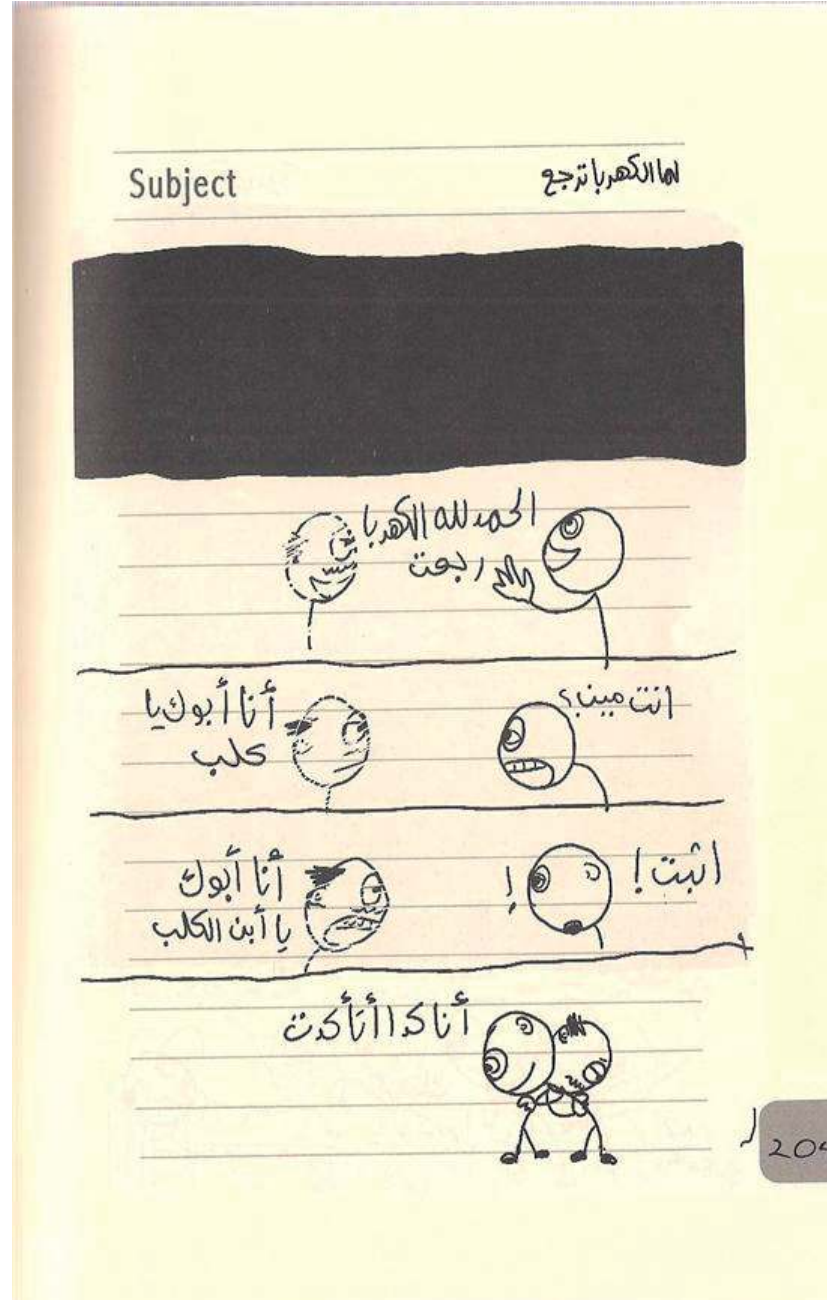 Subject
لما الكهربا ترجع
الحمد لله الكهربا
رجعت
انت مين؟
أنا أبوك يا
كلب
اثبت!
!
أنا أبوك
يا أبن الكلب
أنا كدا أتأكدت
204